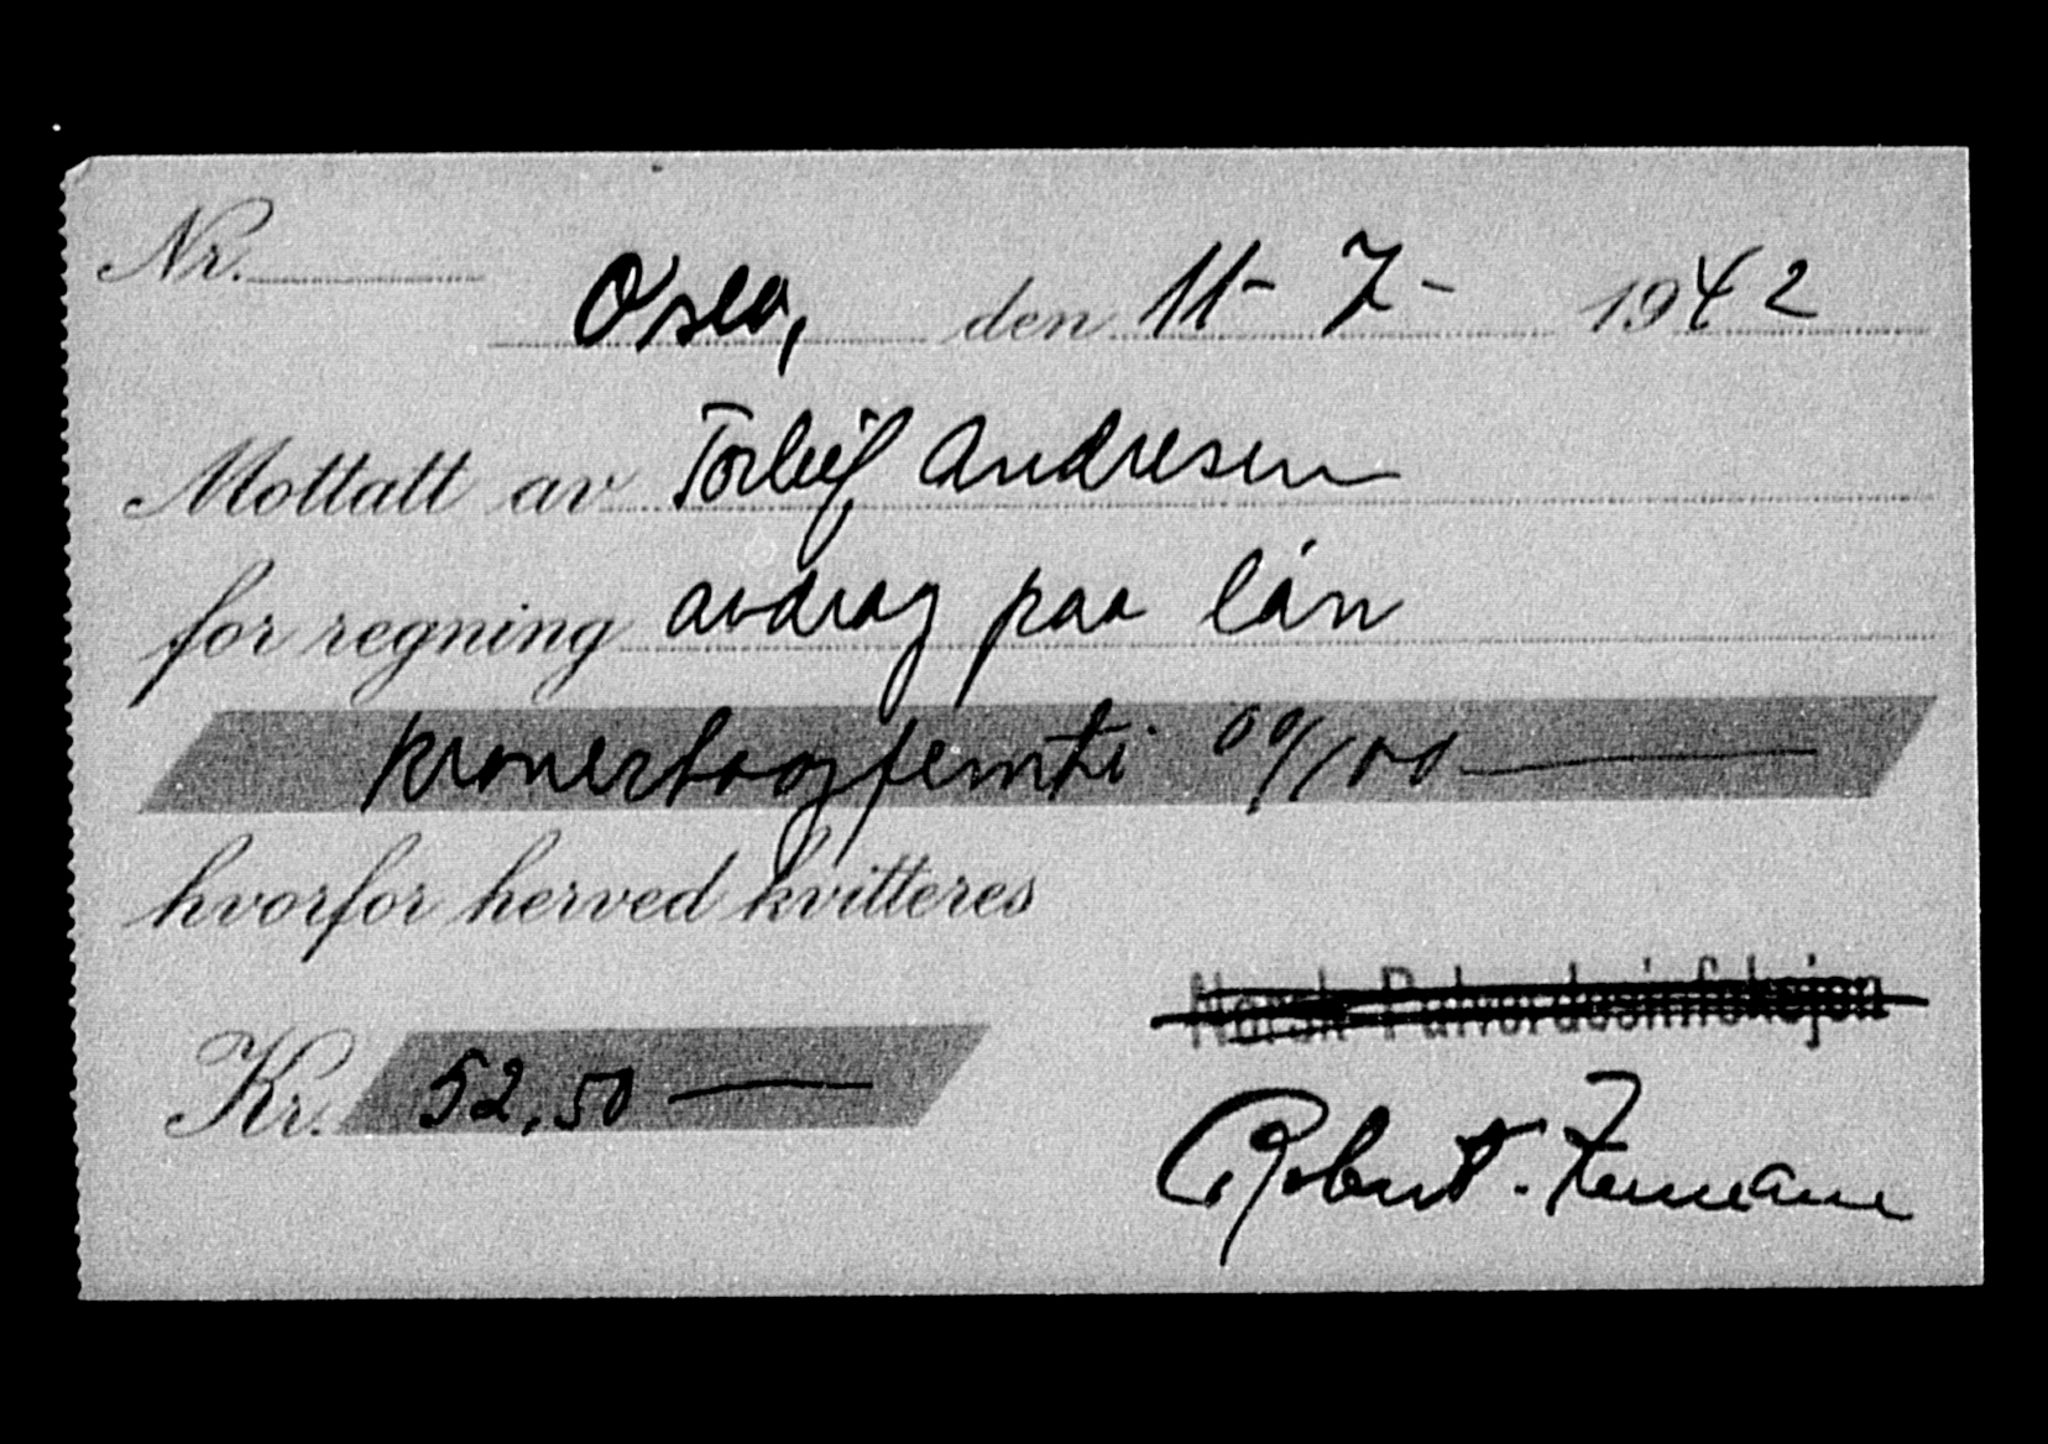 Nr.
Oslo, den 11-7- 1942
Mottatt av Torleif Andresen
for regning avdrag paa lån
kronertoogfemti 00/100
hvorfor herved kvitteres
Norsk Pulverdesinfeksjon
Kr. 52,50
Robert.